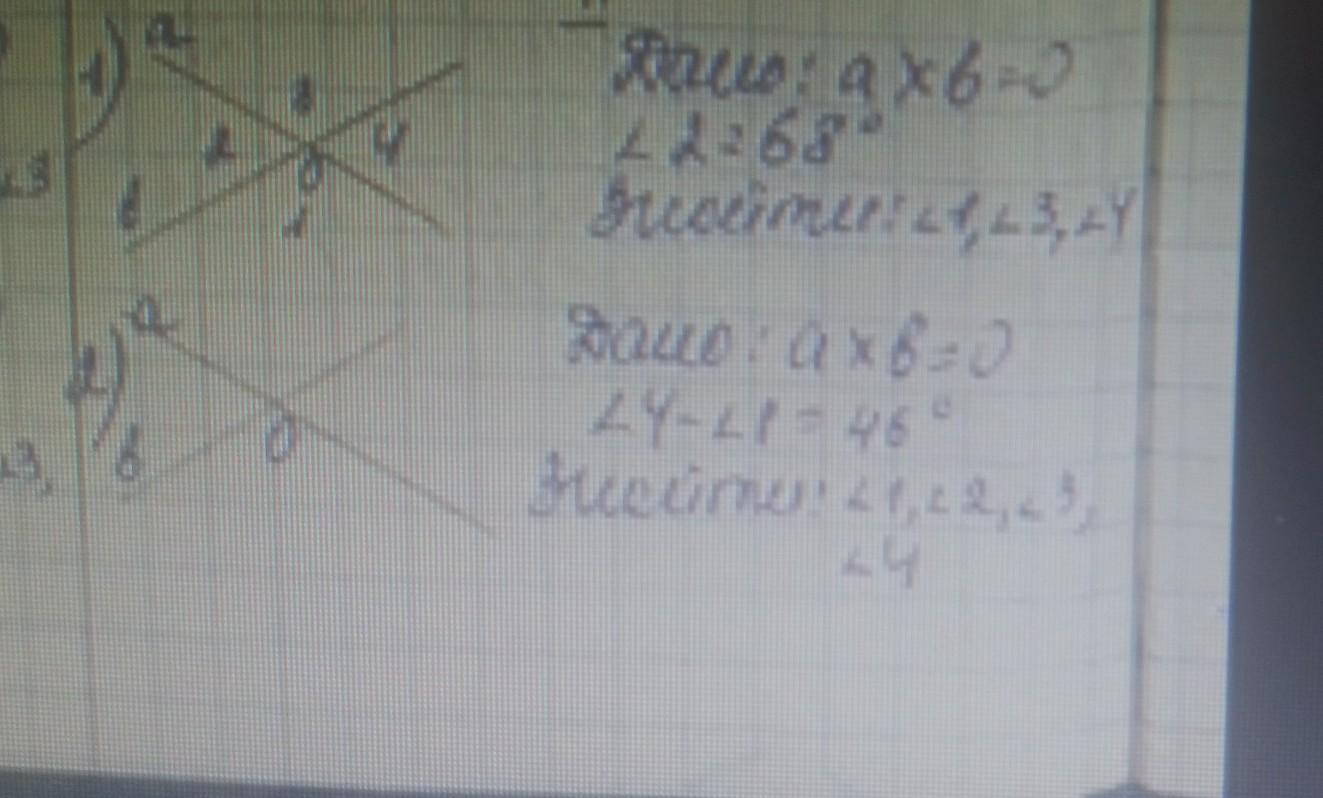 1) a
3
2 4
O
b
1
Дано: a × b = O
∠2 = 68°
Знайти: ∠1, ∠3, ∠4
∠3
2) a
b O
Дано: a × b = O
∠4 - ∠1 = 46°
Знайти: ∠1, ∠2, ∠3,
∠4
∠3,